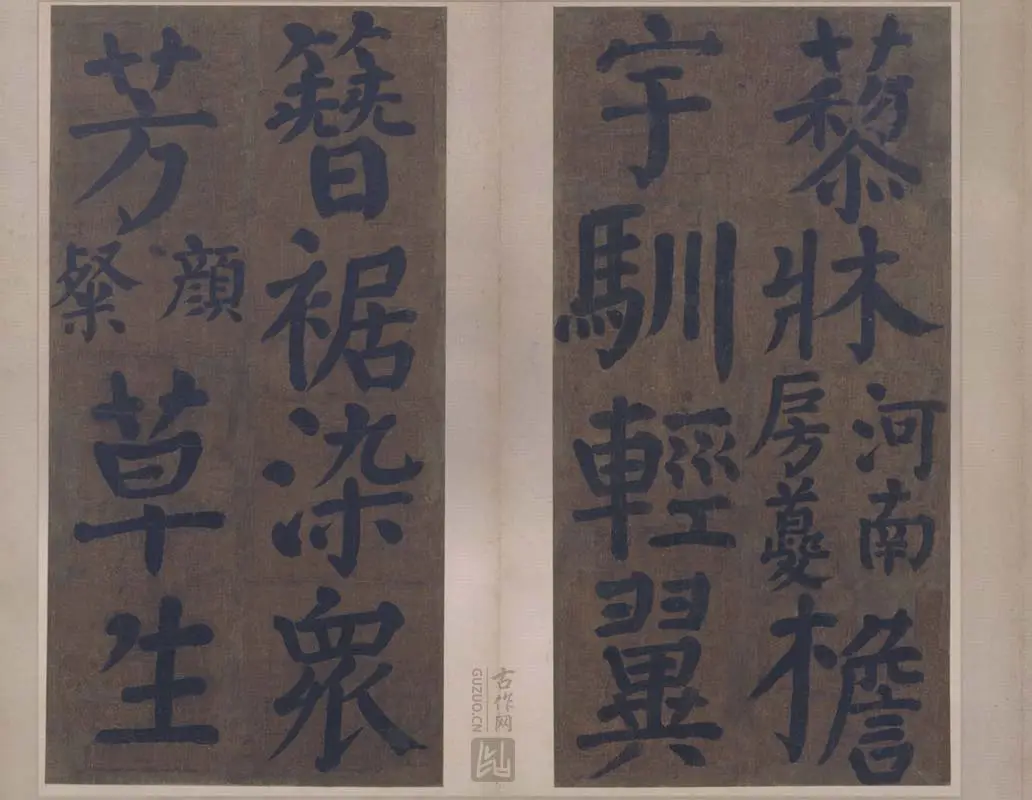 藜牀
河南
房夔
檐
宇馴輕翼
簪裾染眾
芳
顏
粲
草生
古作网
GUZUO.CN